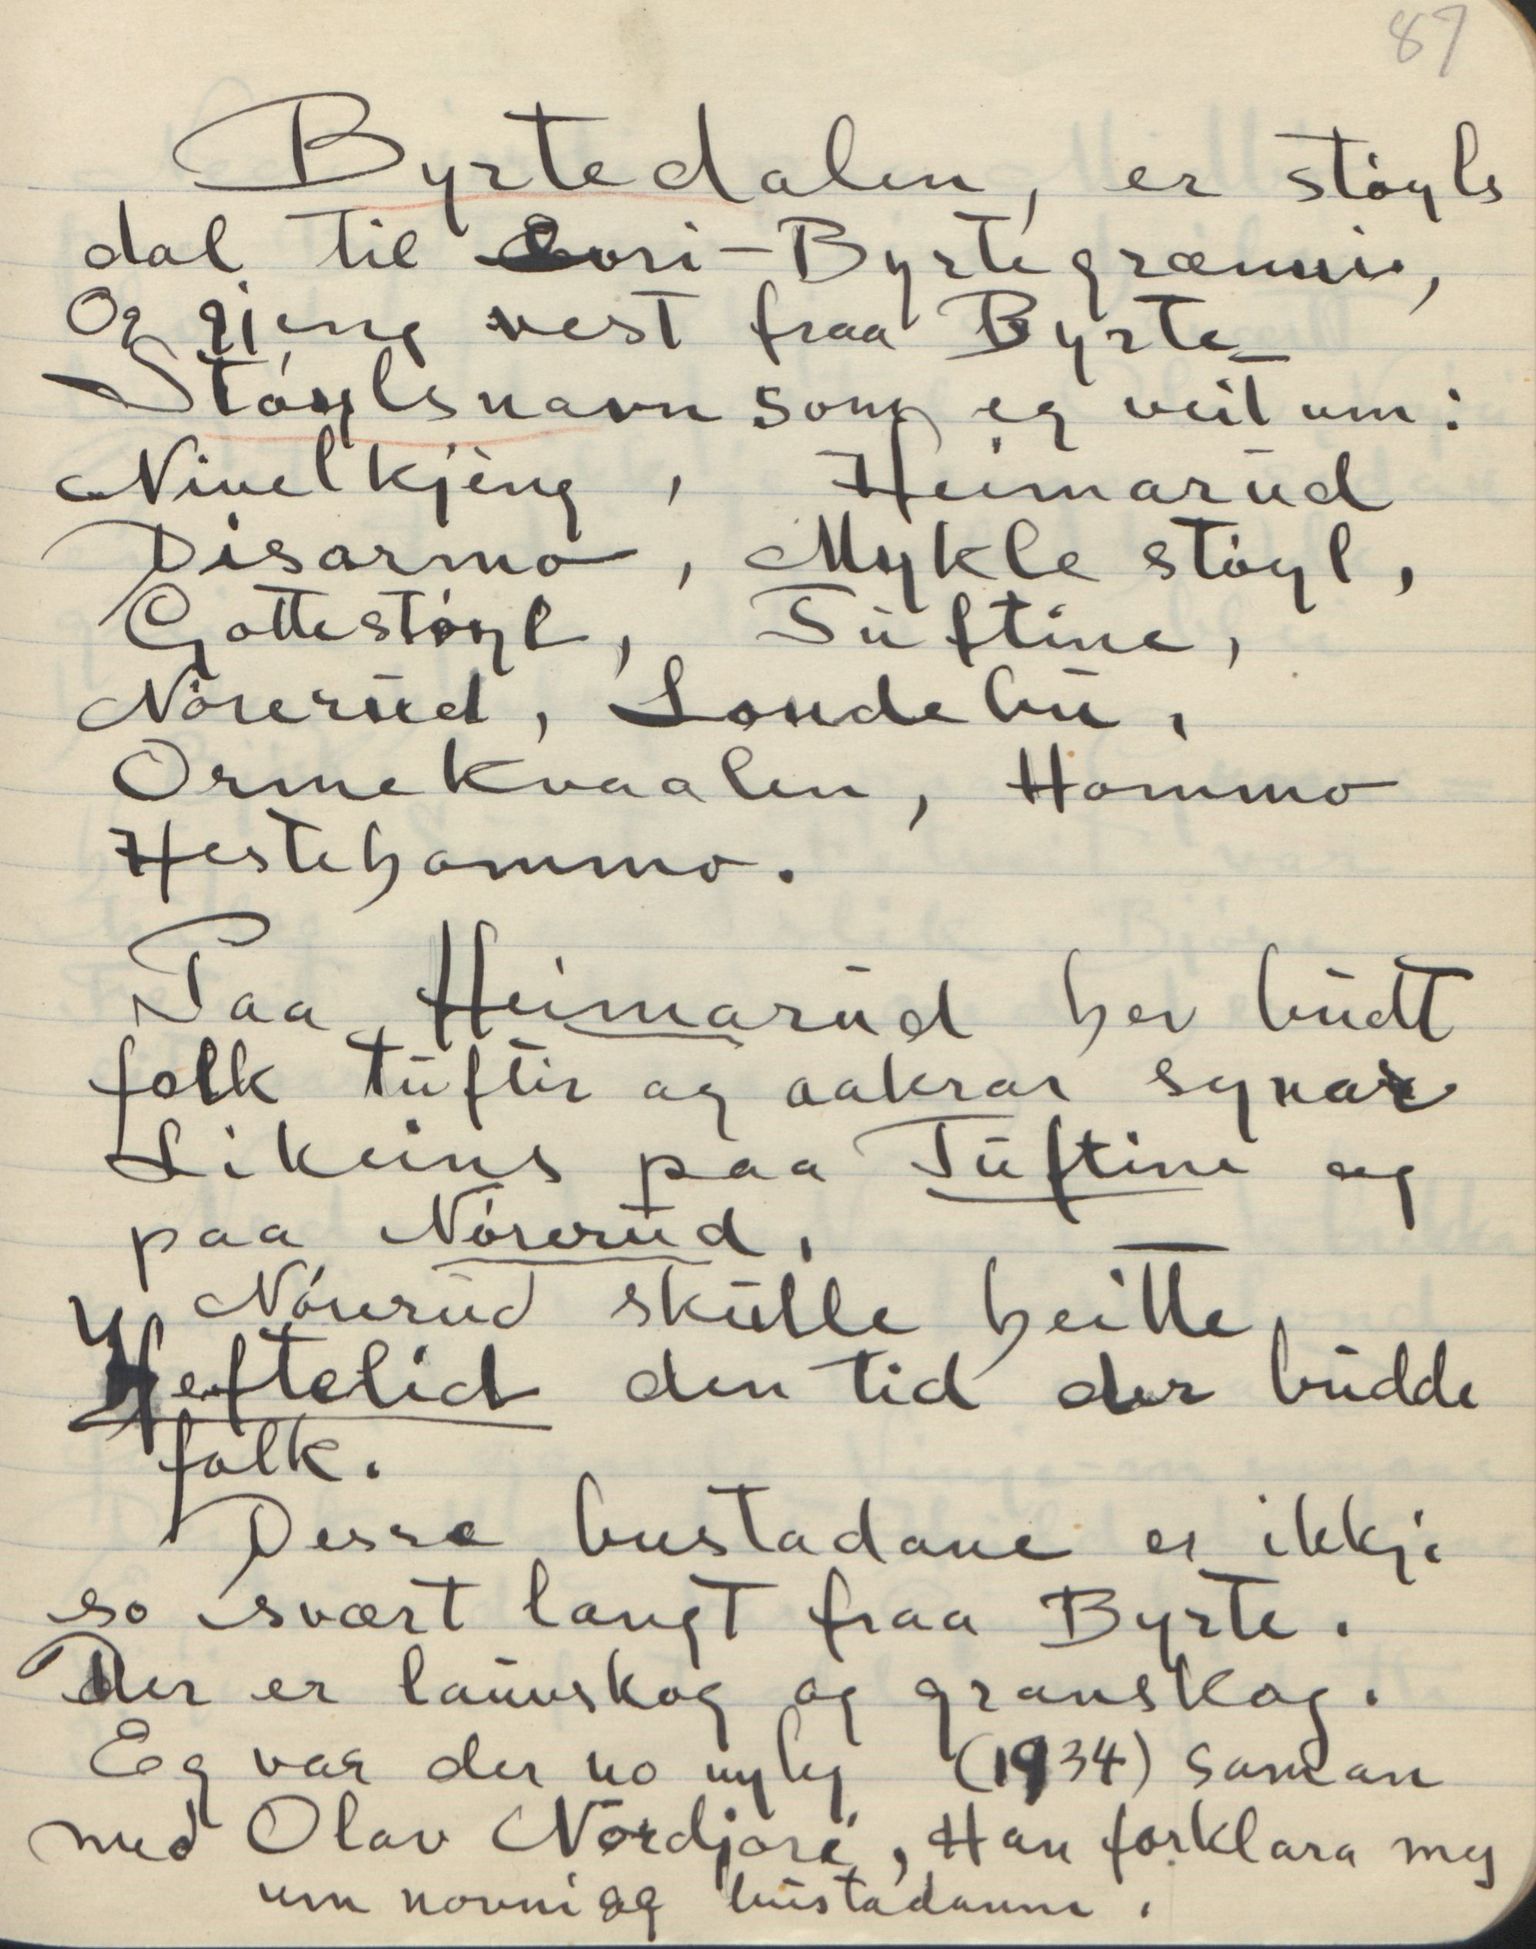 87
Byrtedalen, er støyls
dal til Øvri-Byrtegrænni,
Og gjeng vest fraa Byrte_
Støylsnavn som eg veit um:
Nivelkjèng, Heimarud
Disarmo, Mykle støyl,
Gottestøyl, Tuftine,
Nørerud, Londebu,
Ormekvaalen, Hommo
Hestehommo.
Paa Heimarud hev budt
folk tuftir og aakrar synar
Likeins paa Tuftine og
paa Nørerud.
Nørerud skulle heitte
Heftelid den tid der budde
folk.
Desse bustadane er ikkji
so svært langt fraa Byrte.
Der er lauvskog og granskog.
Eg var der no nyleg (1934) saman
med Olav Nordjore, Han forklara meg
um novni og bustadanne.